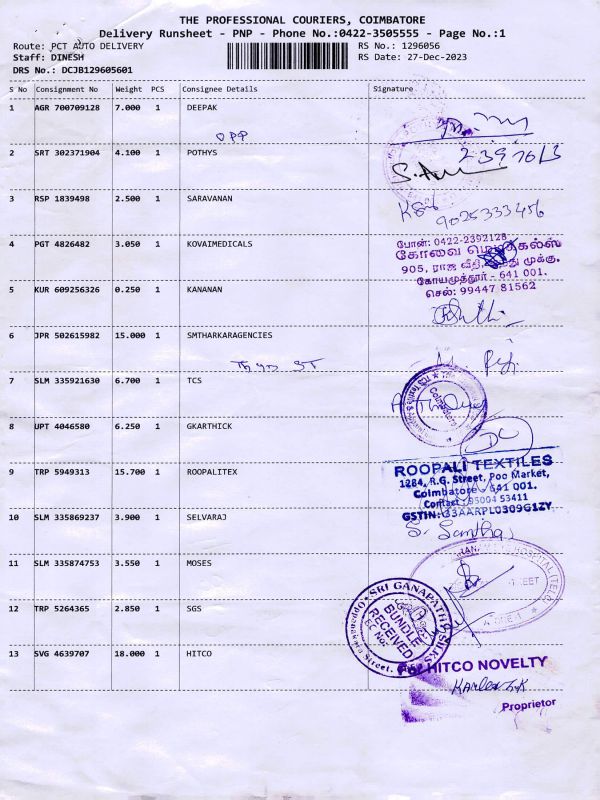 THE PROFESSIONAL COURIERS, COIMBATORE
Delivery Runsheet - PNP - Phone No.:0422-3505555 - Page No.:1
Route: PCT AUTO DELIVERY
RS No.: 1296056
Staff: DINESH
RS Date: 27-Dec-2023
DRS No.: DCJB129605601
S No Consignment No Weight PCS Consignee Details Signature
1 AGR 700709128 7.000 1 DEEPAK
OPP
2 SRT 302371904 4.100 1 POTHYS
3 RSP 1839498 2.500 1 SARAVANAN
9025333456
4 PGT 4826482 3.050 1 KOVAIMEDICALS
போன்: 0422-2392128
கோவை மெடிக்கல்ஸ்
905, ராஜ வீதி, முக்கு.
கோயமுத்தூர் - 641 001.
செல்: 99447 81562
5 KUR 609256326 0.250 1 KANANAN
6 JPR 502615982 15.000 1 SMTHARKARAGENCIES
ST
7 SLM 335921630 6.700 1 TCS
Coimbatore
8 UPT 4046580 6.250 1 GKARTHICK
9 TRP 5949313 15.700 1 ROOPALITEX
ROOPALI TEXTILES
1284, R.G. Street, Poo Market,
Coimbatore - 641 001.
Contact : 95004 53411
GSTIN:33AARPL0309G1ZY
10 SLM 335869237 3.900 1 SELVARAJ
11 SLM 335874753 3.550 1 MOSES
12 TRP 5264365 2.850 1 SGS
SRI GANAPATHY SILKS
BUNDLE
RECEIVED
13 SVG 4639707 18.000 1 HITCO
For HITCO NOVELTY
Proprietor